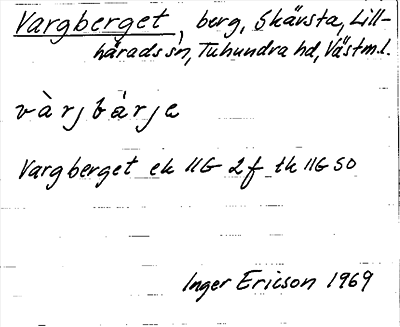 Vargberget, berg, Skävsta, Lill-
härads sn, Tuhundra hd, Västm.l.
vàrjbàrje
Vargberget ek 11G 2f tk 11G SO
Inger Ericson 1969